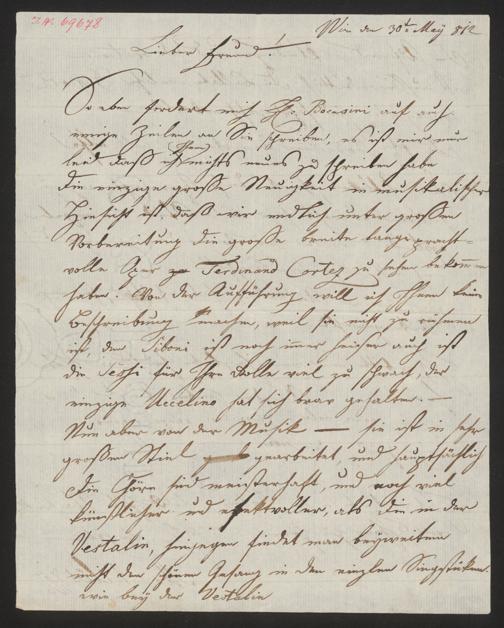 I.N. 69678
Wien den 30t May 812
Lieber Freund!
So eben fordert mich H: Bocasini auf auch
einige Zeilen an Sie schreiben, es ist mir nur
leid daß ich Ihnen nichts neues zu schreiben habe
die einzige große Neuigkeit in musikalischer
Hinsicht ist daß wir endlich unter großen
Vorbereitung die große breite lange pracht-
volle Oper Ferdinand Cortez zu sehen bekommen
haben. Von der Aufführung will ich Ihnen keine
Beschreibung machen, weil sie nicht zu rühmen
ist, der Siboni ist noch imer heiser auch ist
die Sessi für Ihre Rolle viel zu schwach, der
einzige Uccelino hat sich brav gehalten. —
Nun aber von der Musik — sie ist in sehr
großen Stiel gearbeitet, und hauptsächlich
die Chöre sind meisterhaft, und noch viel
künstlicher und effektvoller, als die in der
Vestalin, hingegen findet man beyweiten
nicht den schönen Gesang in den einzlen Singstücken
wie bey der Vestalin